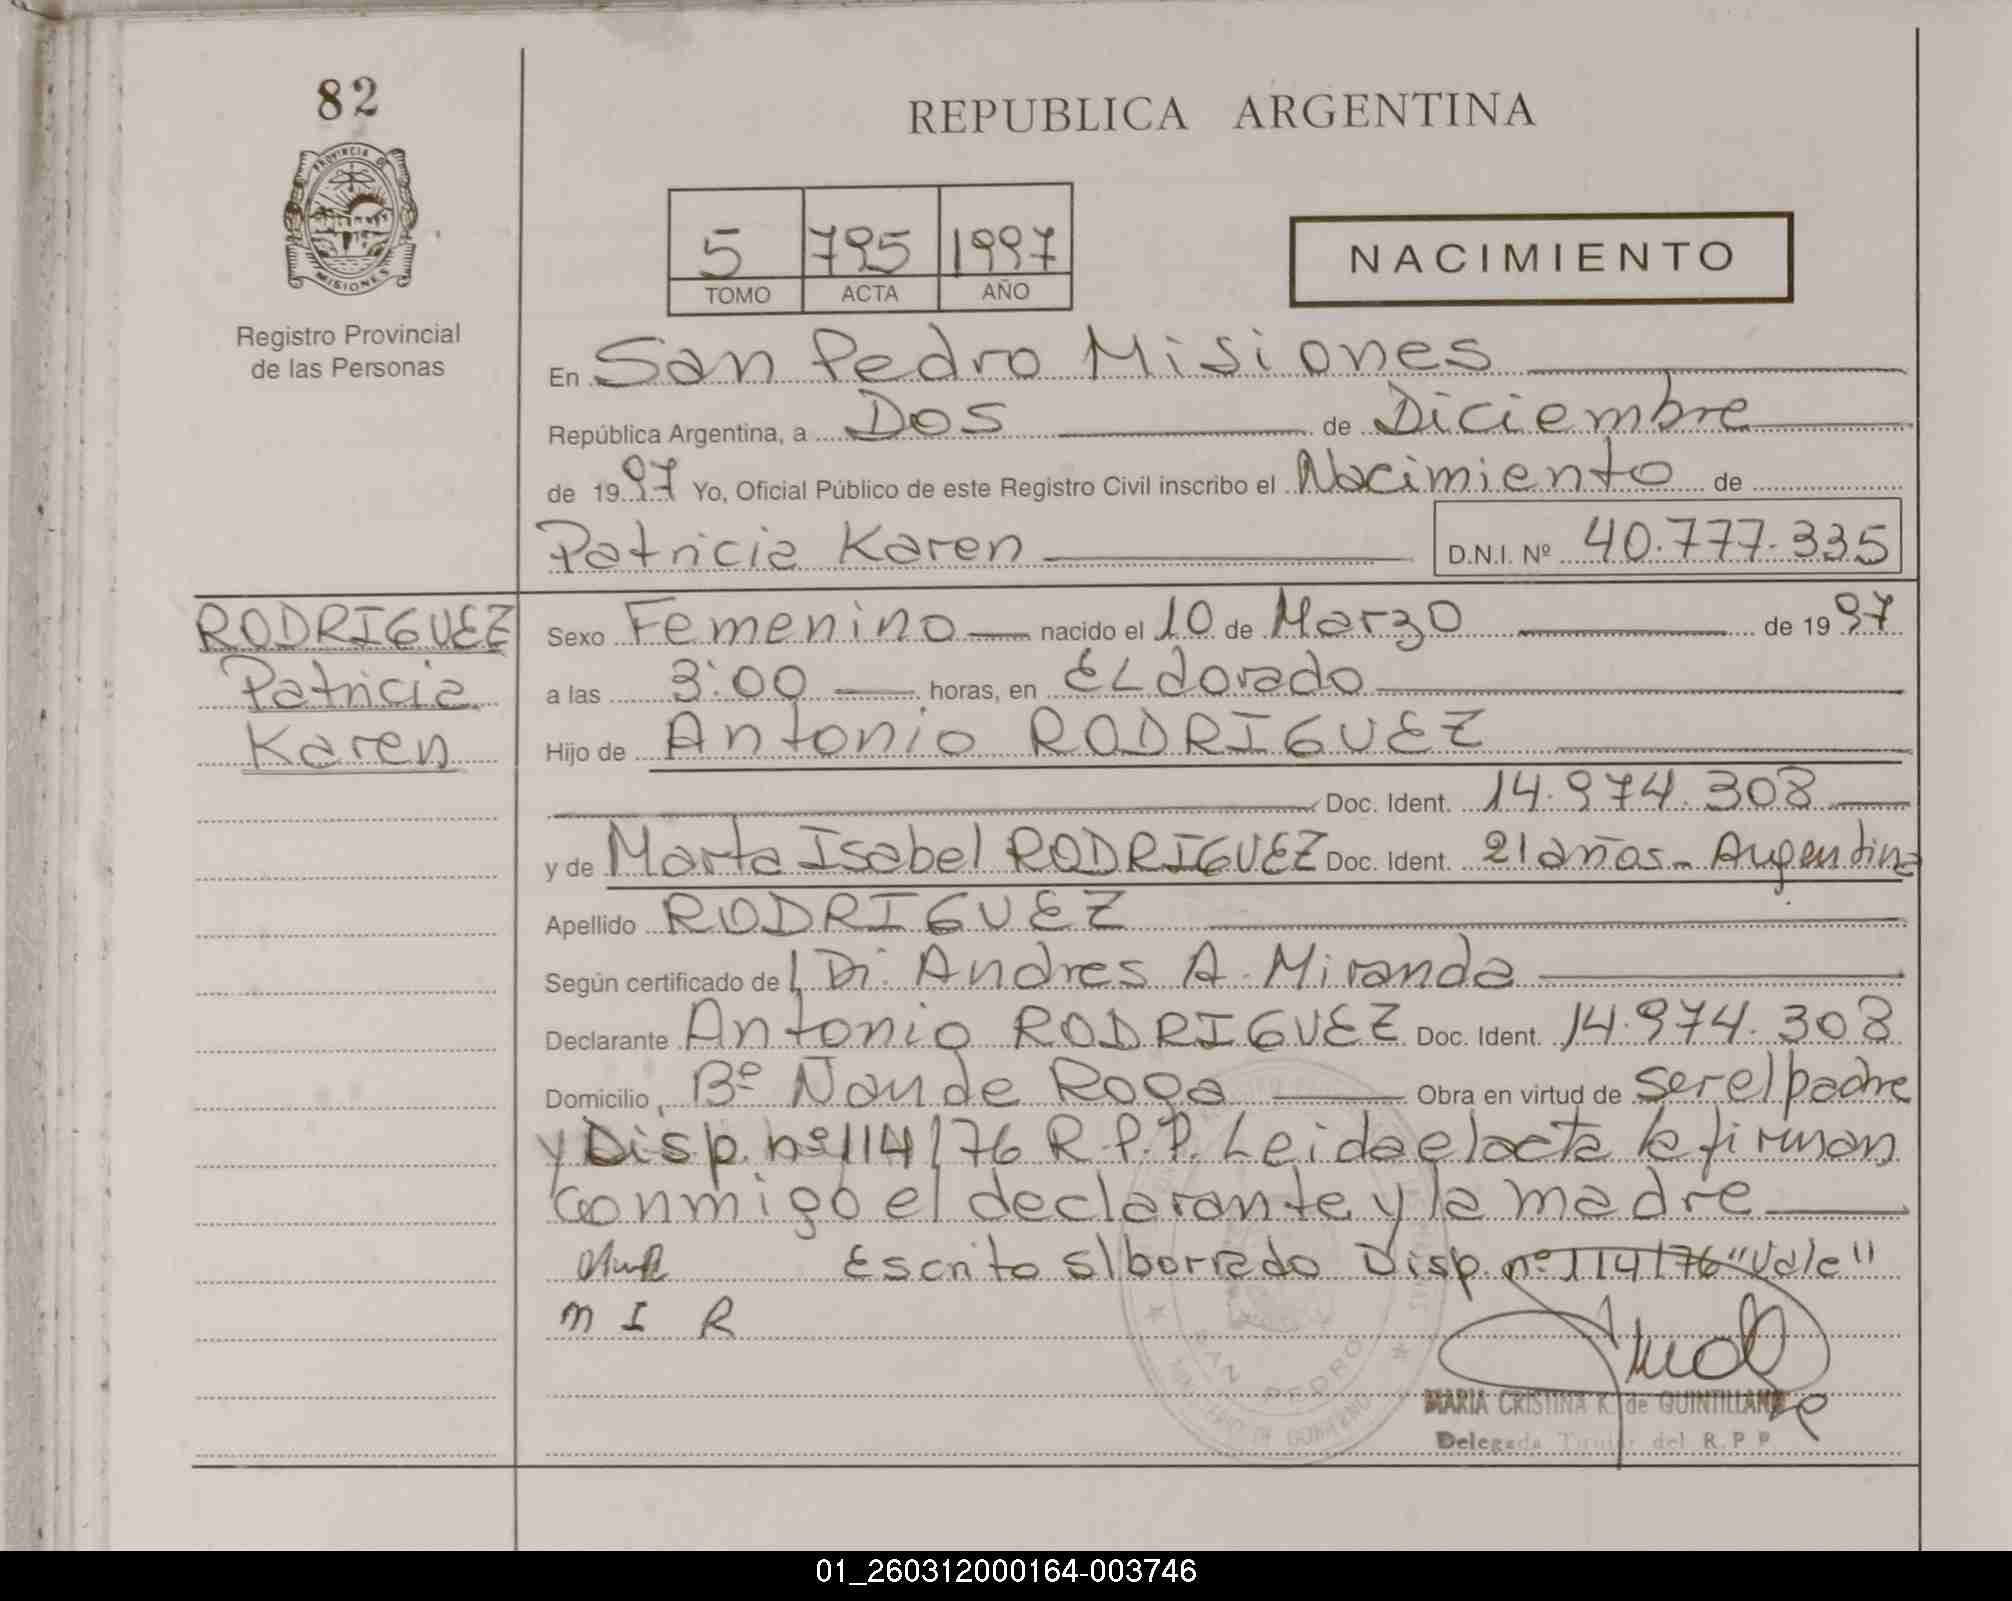 82
PROVINCIA DE
MISIONES
Registro Provincial
de las Personas
REPUBLICA ARGENTINA
5 795 1997
TOMO ACTA AÑO
NACIMIENTO
En San Pedro Misiones
República Argentina, a Dos de Diciembre
de 1997 Yo, Oficial Público de este Registro Civil inscribo el Nacimiento de
Patricia Karen D.N.I. Nº 40.777.335
RODRIGUEZ
Patricia
Karen
Sexo Femenino nacido el 10 de Marzo de 1997
a las 3:00 horas, en ELdorado
Hijo de Antonio RODRIGUEZ
Doc. Ident. 14.974.308
y de Marta Isabel RODRIGUEZ Doc. Ident. 21 años - Argentina
Apellido RODRIGUEZ
Según certificado de Dr. Andres A. Miranda
Declarante Antonio RODRIGUEZ Doc. Ident. 14.974.308
Domicilio Bº Obra en virtud de ser el padre
y Disp. nº 114/76 R.P.P. Leida el acta la firman
conmigo el declarante y la madre
Escrito s/borrado Disp. nº 114/76 "Vale"
M I R
SAN PEDRO
MARIA CRISTINA K. de QUINTILLAN
Delegada Titular del R.P.P
01_260312000164-003746